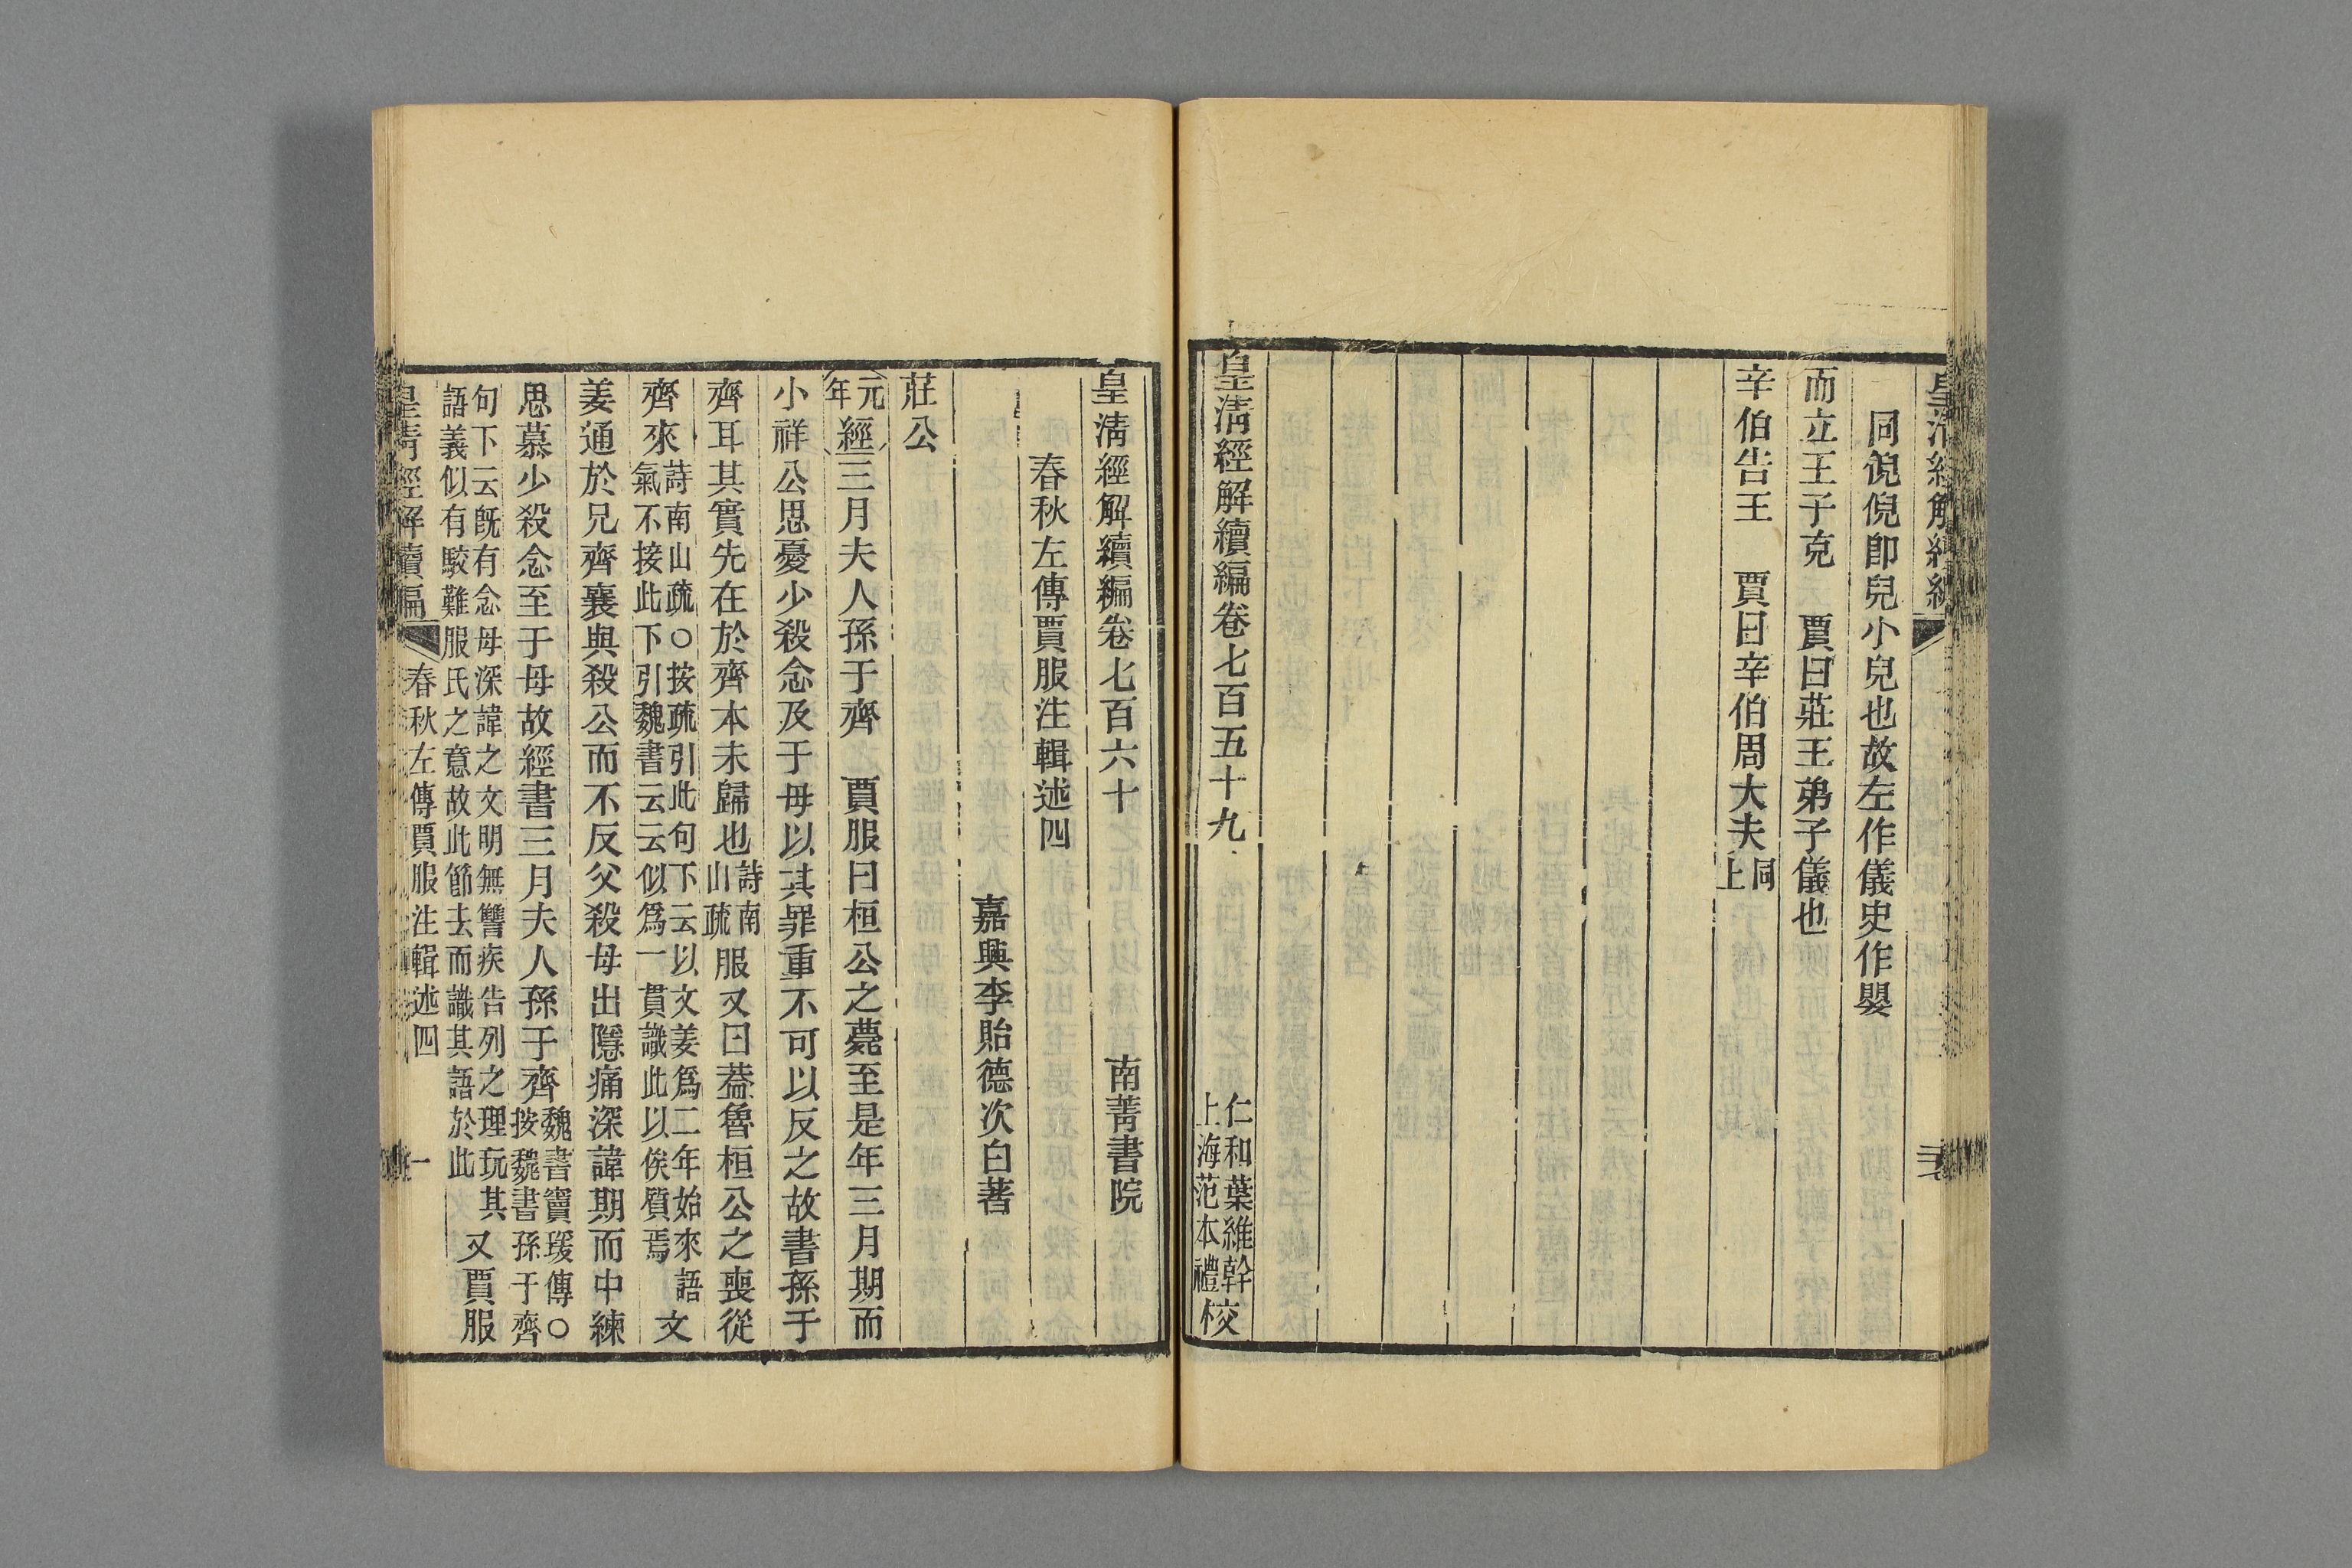 同倪倪卽兒小兒也故左作儀史作嬰
而立王子克　賈曰莊王弟子儀也
辛伯告王　賈曰辛伯周大夫同上
皇淸經解續編卷七百五十九
仁和葉維幹
上海范本禮
校
皇淸經解續編卷七百六十
南菁書院
春秋左傳賈服注輯述四
嘉興李貽德次白著
莊公
元年經三月夫人孫于齊　賈服曰桓公之薨至是年三月期而
小祥公思憂少殺念及于母以其罪重不可以反之故書孫于
齊耳其實先在於齊本未歸也詩南山疏服又曰葢魯桓公之喪從
齊來詩南山疏○按疏引此句下云以文姜爲二年始來語氣不接此下引魏書云云似爲一貫識此以俟質焉　文
姜通於兄齊襄與殺公而不反父殺母出隱痛深諱期而中練
思慕少殺念至于母故經書三月夫人孫于齊魏書竇瑗傳○按魏書孫于齊
句下云旣有念母深諱之文明無讐疾告列之理玩其語義似有駁難服氏之意故此節去而識其語於此　又賈服
皇淸經解續編　春秋左傳賈服注輯述四　一